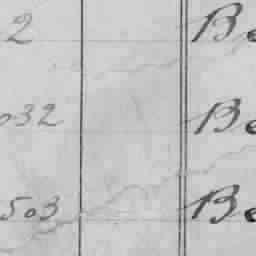 2 Be
032 Be
503 Be